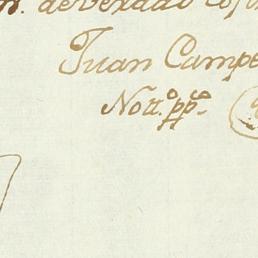 de verdad
Juan Campe
Nott.º pp.ᶜᵒ